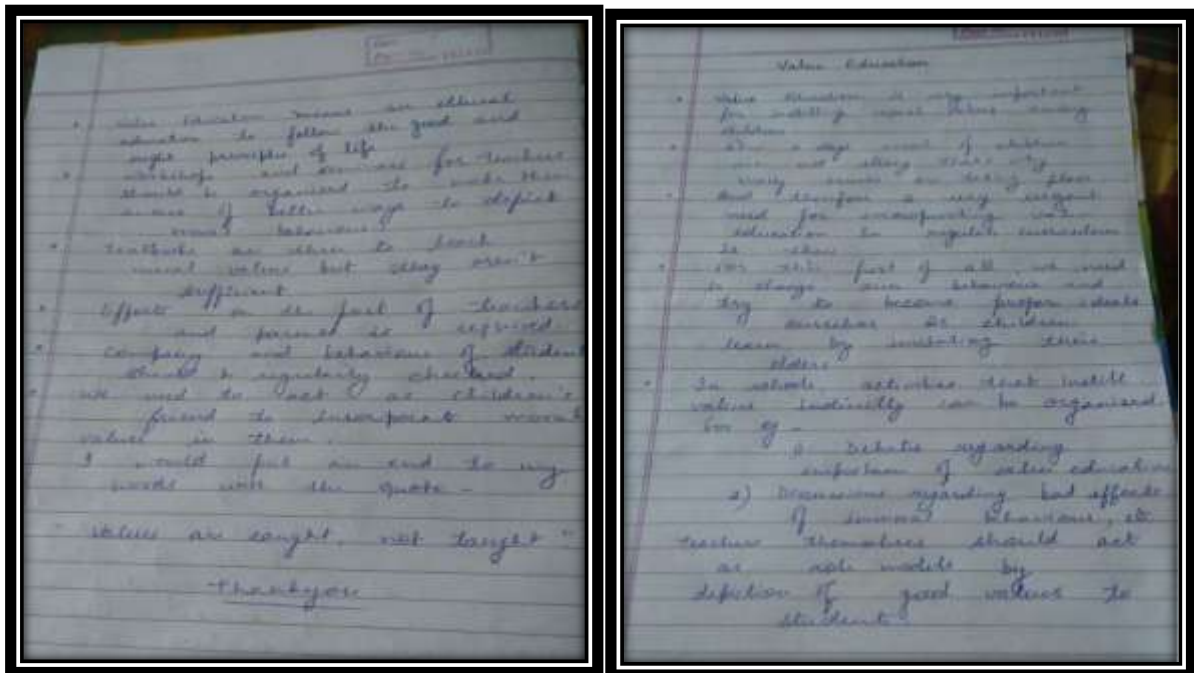 Value Education means an ethical
education to follow the good and
right principles of life
workshops and seminars for teachers
should be organised to make them
aware of better ways to depict
moral behaviour.
textbooks are there to teach
moral values but they aren't
sufficient
Efforts on the part of teachers
and parents is required.
Company and behaviour of student
should be regularly checked.
we need to act as children's
friend to moral
values in them.
I would put an end to my
words with the quote -
"Values are caught, not taught"
Thankyou
Value Education
Value Education is very important
for moral values among
children
a days most of children
are not
are taking place
And therefore a very urgent
need for
education in regular curriculum
is there
For this first of all, we need
to change our behaviour and
try to become proper ideals
ourselves as children
learn by imitating their
elders
In schools activities that instill
values indirectly can be organised
for eg -
1) Debates regarding
of value education
2) Discussions regarding bad effects
of immoral behaviour, etc
teachers themselves should act
as role models by
depiction of good values to
students.